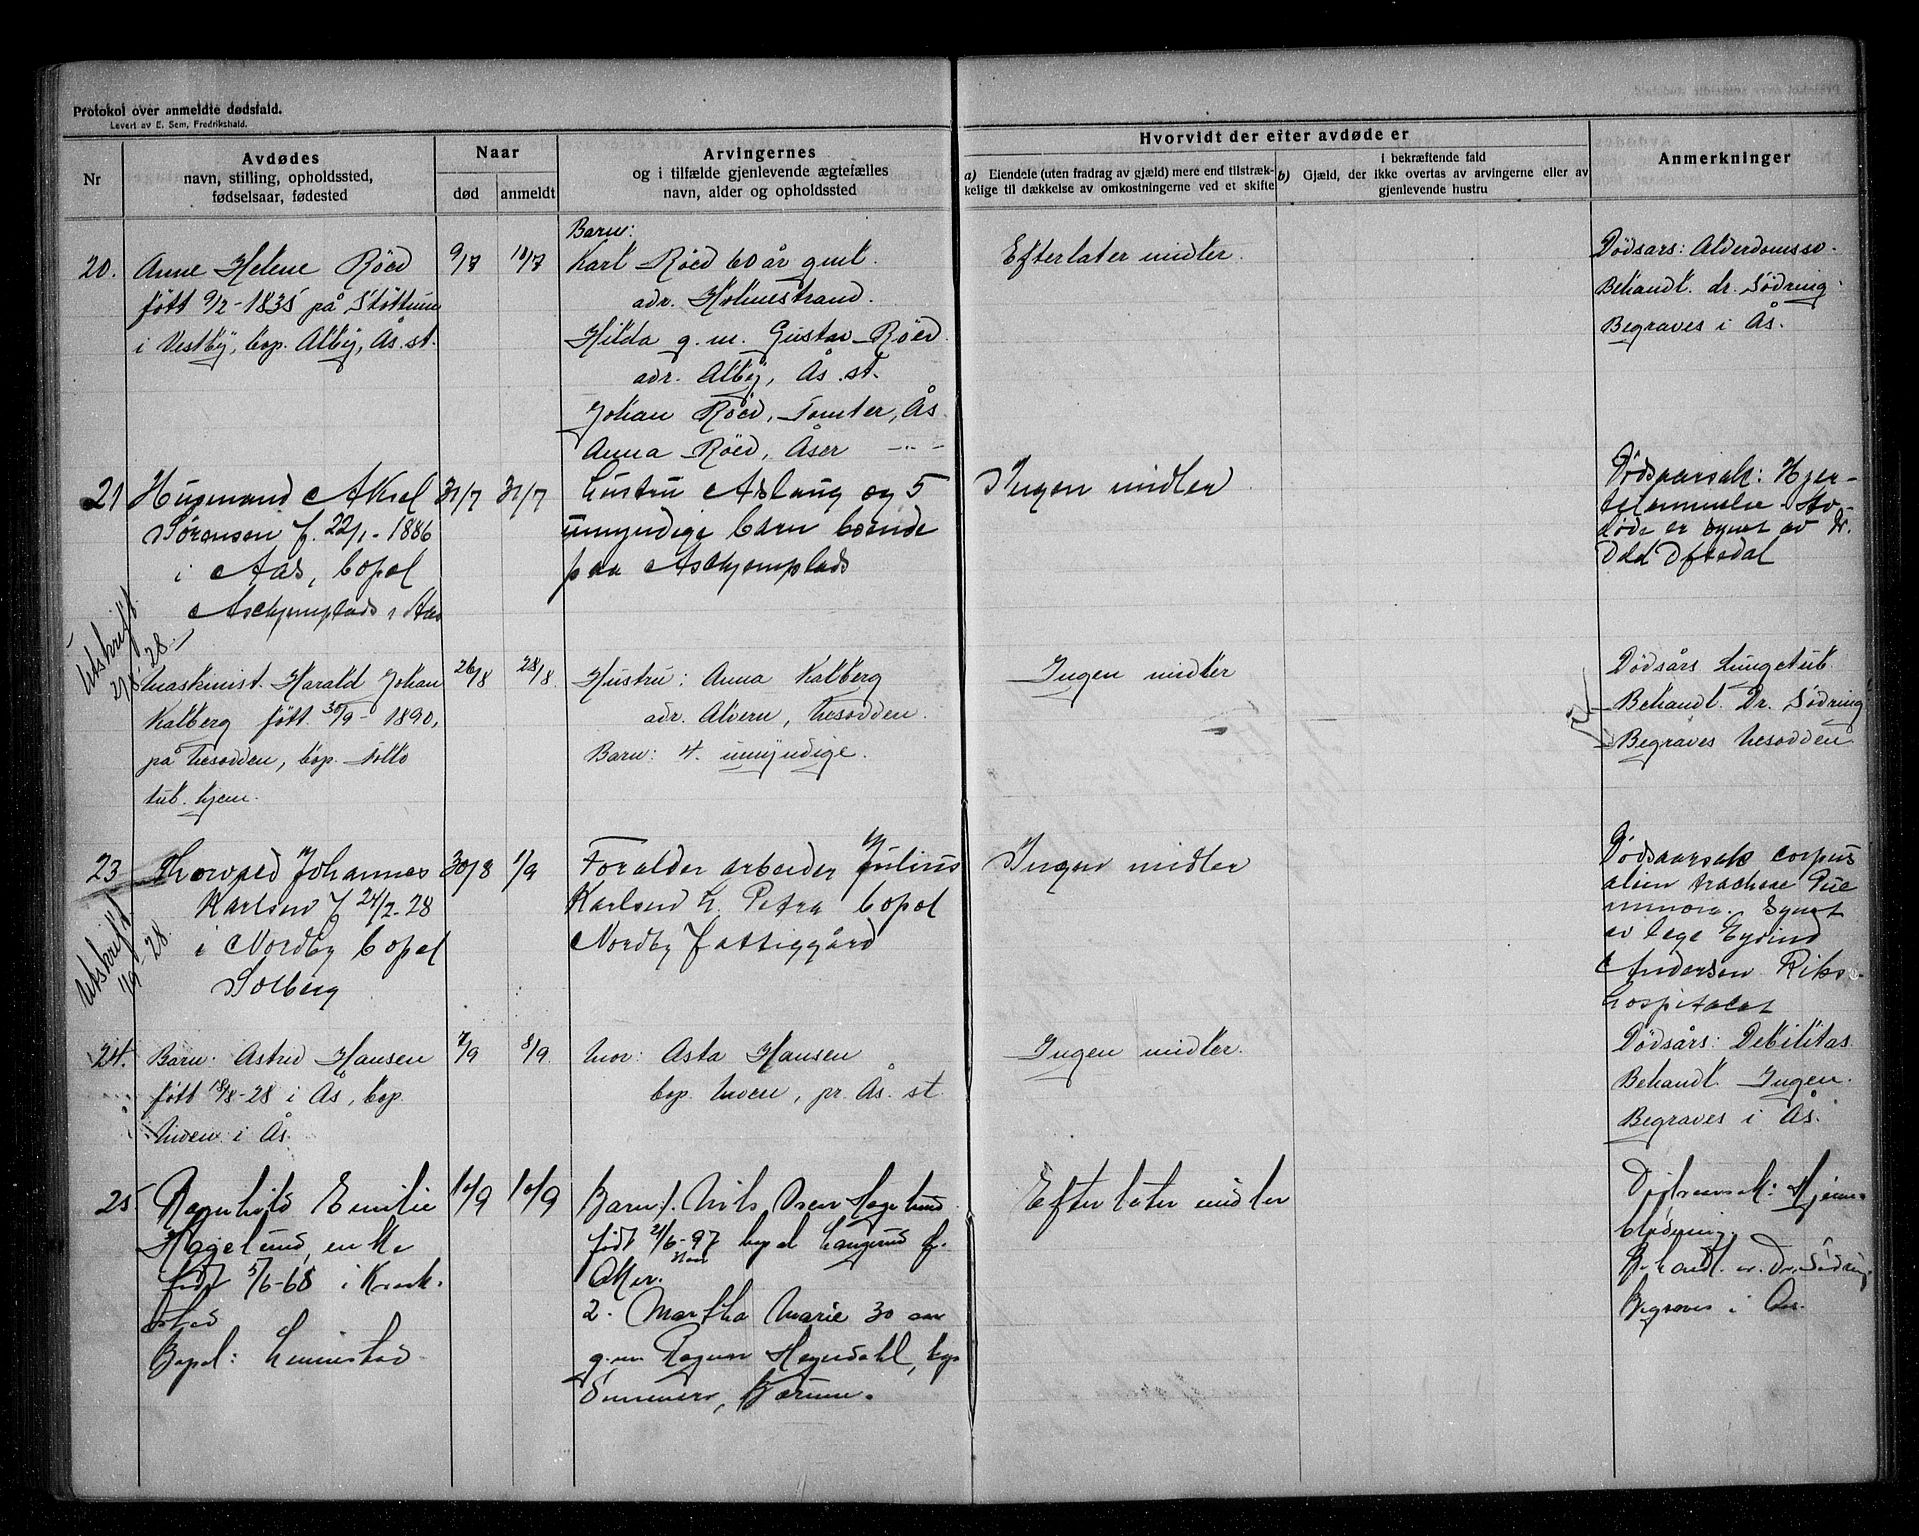 Protokol over anmeldte dødsfald.
Levert av E. Sem, Fredrikshald.
Nr
Avdødes
navn, stilling, opholdssted,
fødselsaar, fødested
Naar
død
anmeldt
Arvingernes
og i tilfælde gjenlevende ægtefælles
navn, alder og opholdssted
Hvorvidt der efter avdøde er
a) Eiendele (uten fradrag av gjæld) mere end tilstræk-
kelige til dækkelse av omkostningerne ved et skifte
b)
i bekræftende fald
Gjæld, der ikke overtas av arvingerne eller av
gjenlevende hustru
Anmerkninger
20.
Anne Helene Röed
fött 9/2-1835 på Stöttum
i Vestby, bop. Alby, Ås.st.
9/7
10/7
Barn:
Karl Röed 60 år gmt.
adr. Holmestrand.
Hilda g.m. Gustav Röed
adr. Alby, Ås.st.
Johan Röed, Tomter, Ås
Anna Röed, Åser -"-
Efterlater midler.
Dödsårs: Alderdomssv.
Behandl. dr. Södring.
Begraves i Ås.
21
Husmand Aksel
Sørensen f. 22/1-1886
i Aas, bopel
Askjemplads i Aas
31/7
31/7
hustru Aslaug og 5
umyndige barn boende
paa Askjemplads
Ingen midler
Dødsaarsak: Hjer-
telammelse Av-
døde er synet av Dr.
Odd Oftedal
Utskrift
28.
Maskinist. Harald Johan
Kalberg fött 30/9-1890,
på Nesodden, bop. Sollo
tub. hjem.
26/8
28/8.
Hustru: Anna Kalberg
adr. Alvern, Nesodden.
Barn: 4. umyndige.
Ingen midler
Dödsårs Lungetub.
Behandl. Dr. Södring
Begraves Nesodden
23
Thorvald Johannes
Karlsen f 24/2-28
i Nordby bopel
Solberg
30/8
1/9
Forælder arbeider Julius
Karlsen h. Petra bopel
Nordby Fattiggård
Ingen midler
Dødsaarsak corpus
alien tracheae
Synet
av læge Eyvind
Andersen Riks-
hospitalet
Utskrift
1/9-28.
24.
Barn: Astrid Hansen
fött 18/8-28 i Ås, bop.
i Ås.
7/9
8/9.
Mor: Asta Hansen
bop. pr. Ås. st
Ingen midler.
Dödsårs: Debilitas
Behandl. Ingen.
Begraves i Ås.
25
Ragnhild Emilie
Hagelund, enke
født 5/6-68 i Kraak-
stad
Bopel:
10/9
10/9
Barn 1. Nils Hagelund
født 21/6-97 bopel Langerud
Aker.
2. Martha Marie 30 aar
g.m. Ragnar bop
Bærum.
Efterlater midler
Dødsaarsak: Hjerne-
blødning.
Behandl. av Dr. Södring
Begraves i Aas.